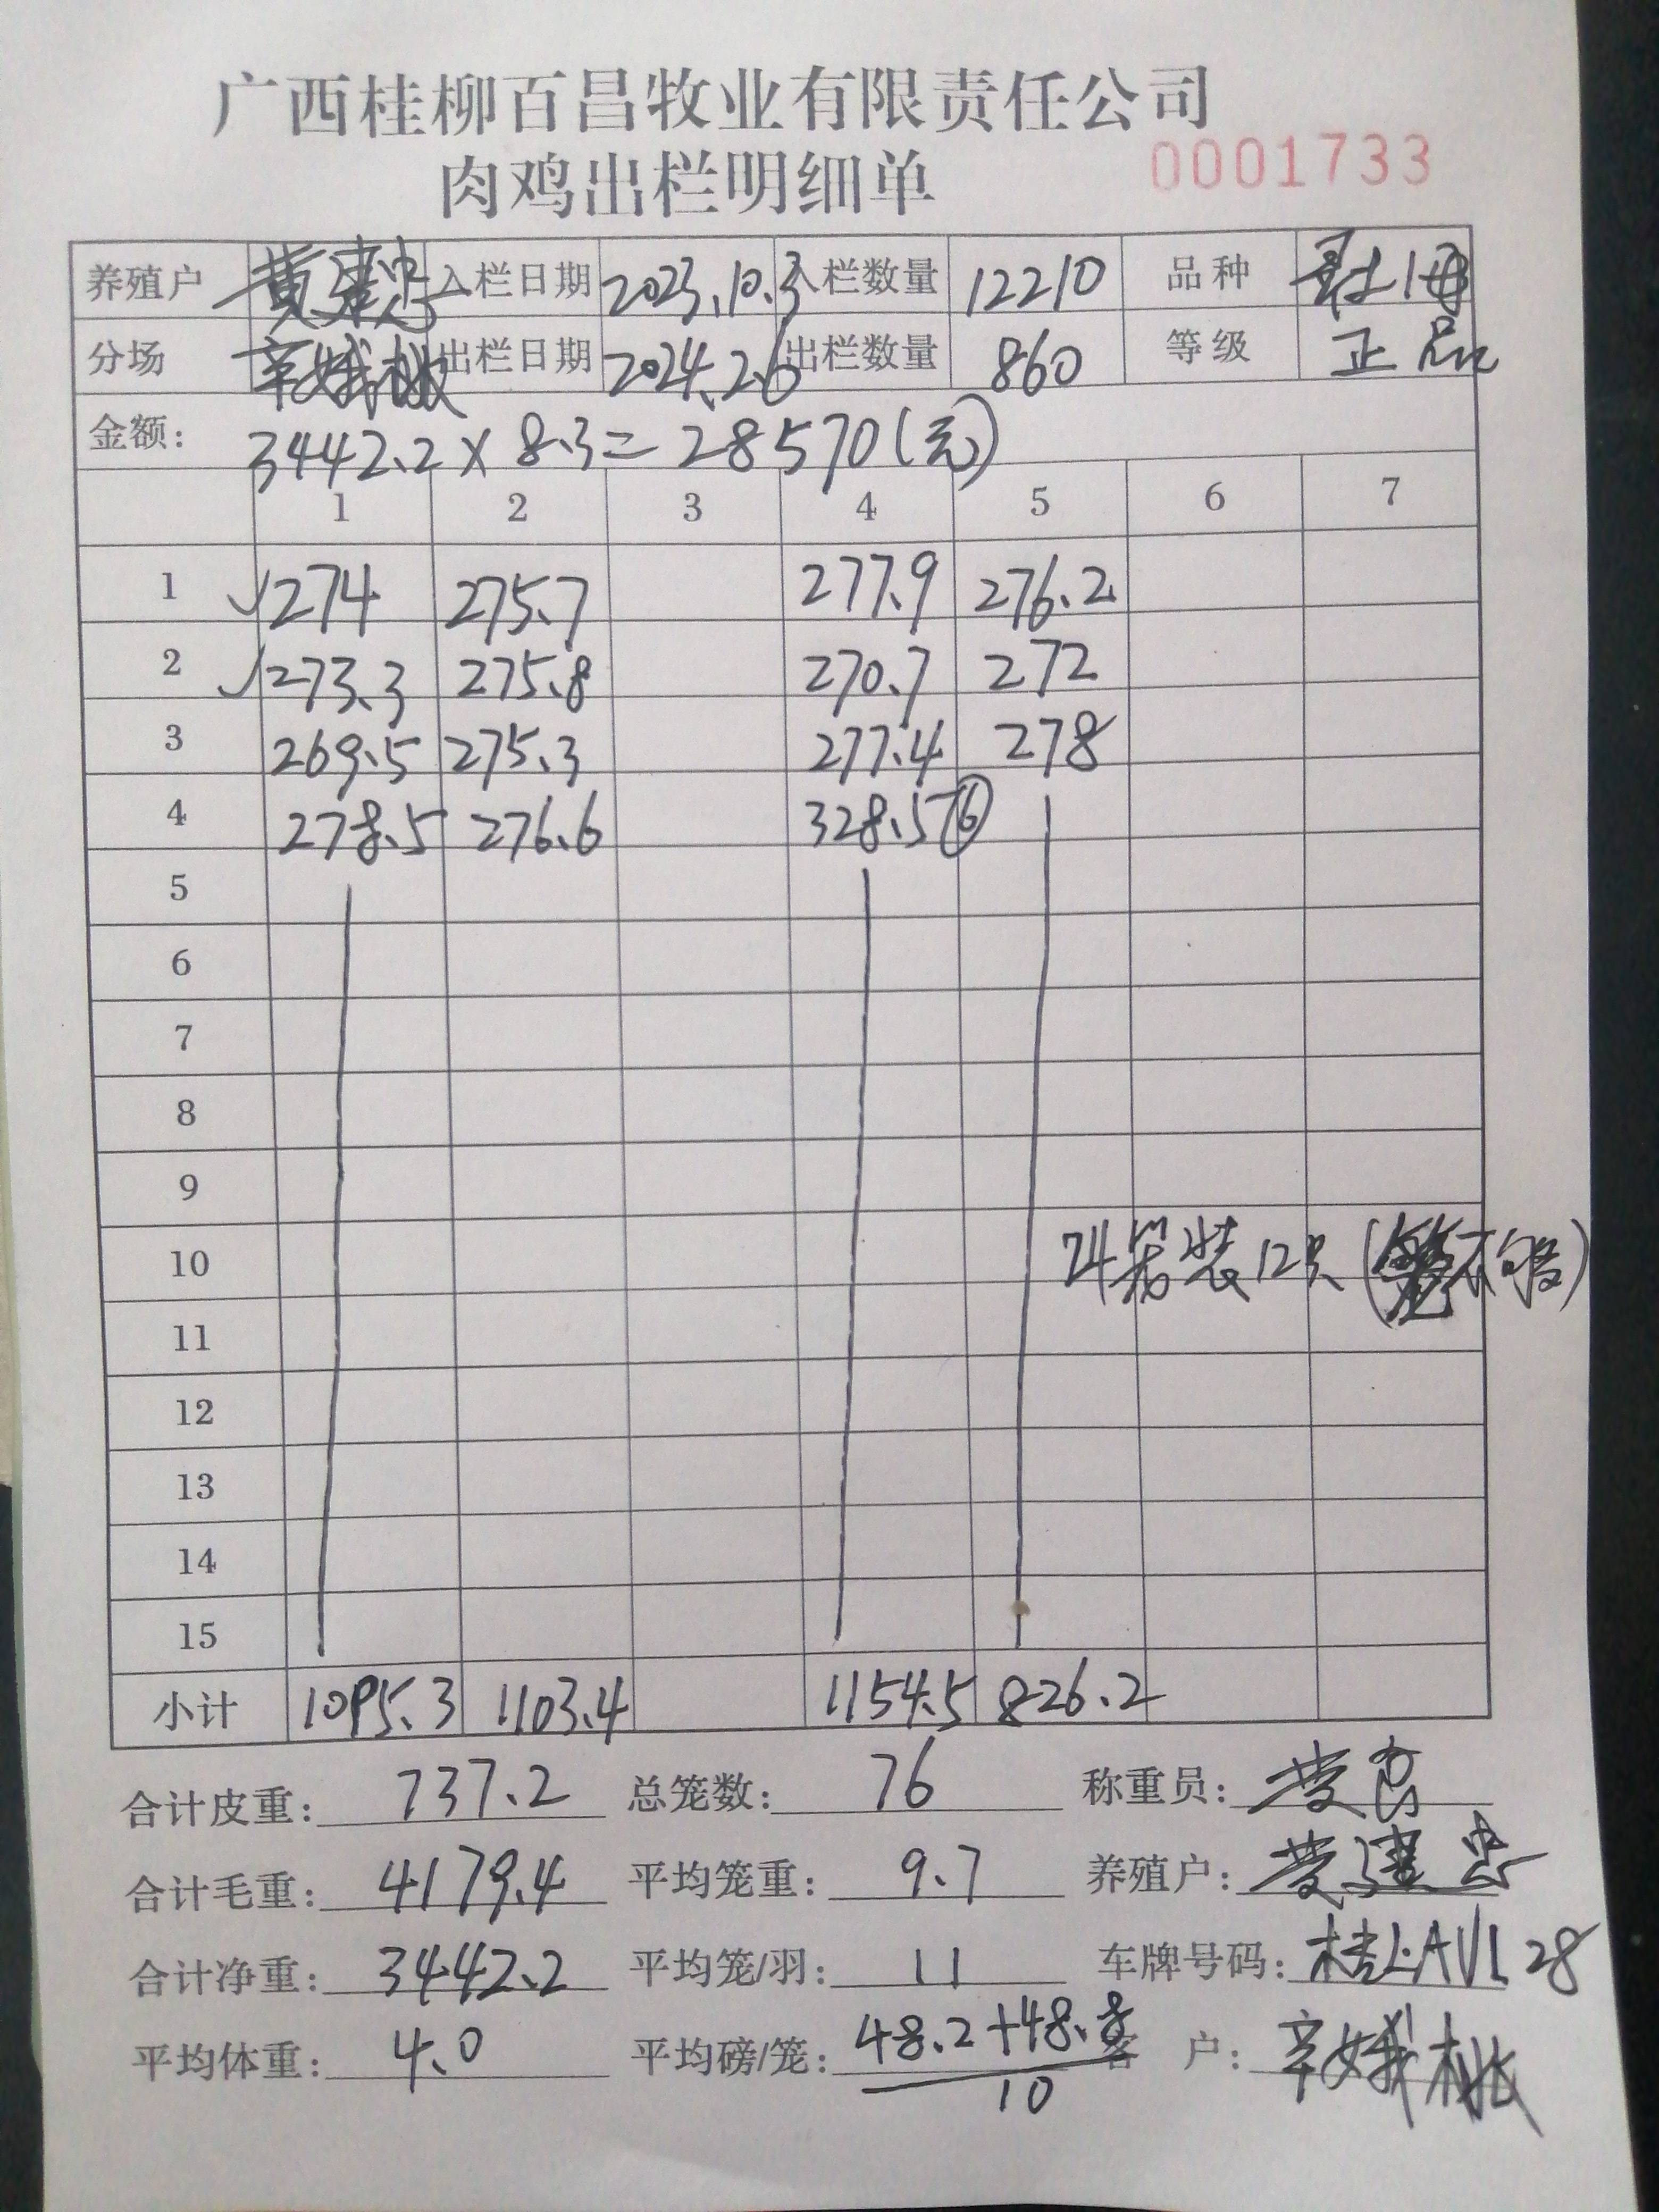 广西桂柳百昌牧业有限责任公司
肉鸡出栏明细单 0001733
养殖户 黄建忠 入栏日期 2023.10.3 入栏数量 12210 品种
分场 辛娥桃 出栏日期 2024.2.6 出栏数量 860 等级 正品
金额: 3442.2×8.3=28570(元)
1 2 3 4 5 6 7
1 √274 275.7 277.9 276.2
2 √273.3 275.8 270.7 272
3 269.5 275.3 277.4 278
4 278.5 276.6 328.5 ⑥
5
6
7
8
9
10 装12只(不够)
11
12
13
14
15
小计 1095.3 1103.4 1154.5 826.2
合计皮重: 737.2 总笼数: 76 称重员:
合计毛重: 4179.4 平均笼重: 9.7 养殖户: 黄建忠
合计净重: 3442.2 平均笼/羽: 11 车牌号码:
平均体重: 4.0 平均磅/笼: 48.2+48.8 客户: 辛娥桃
10